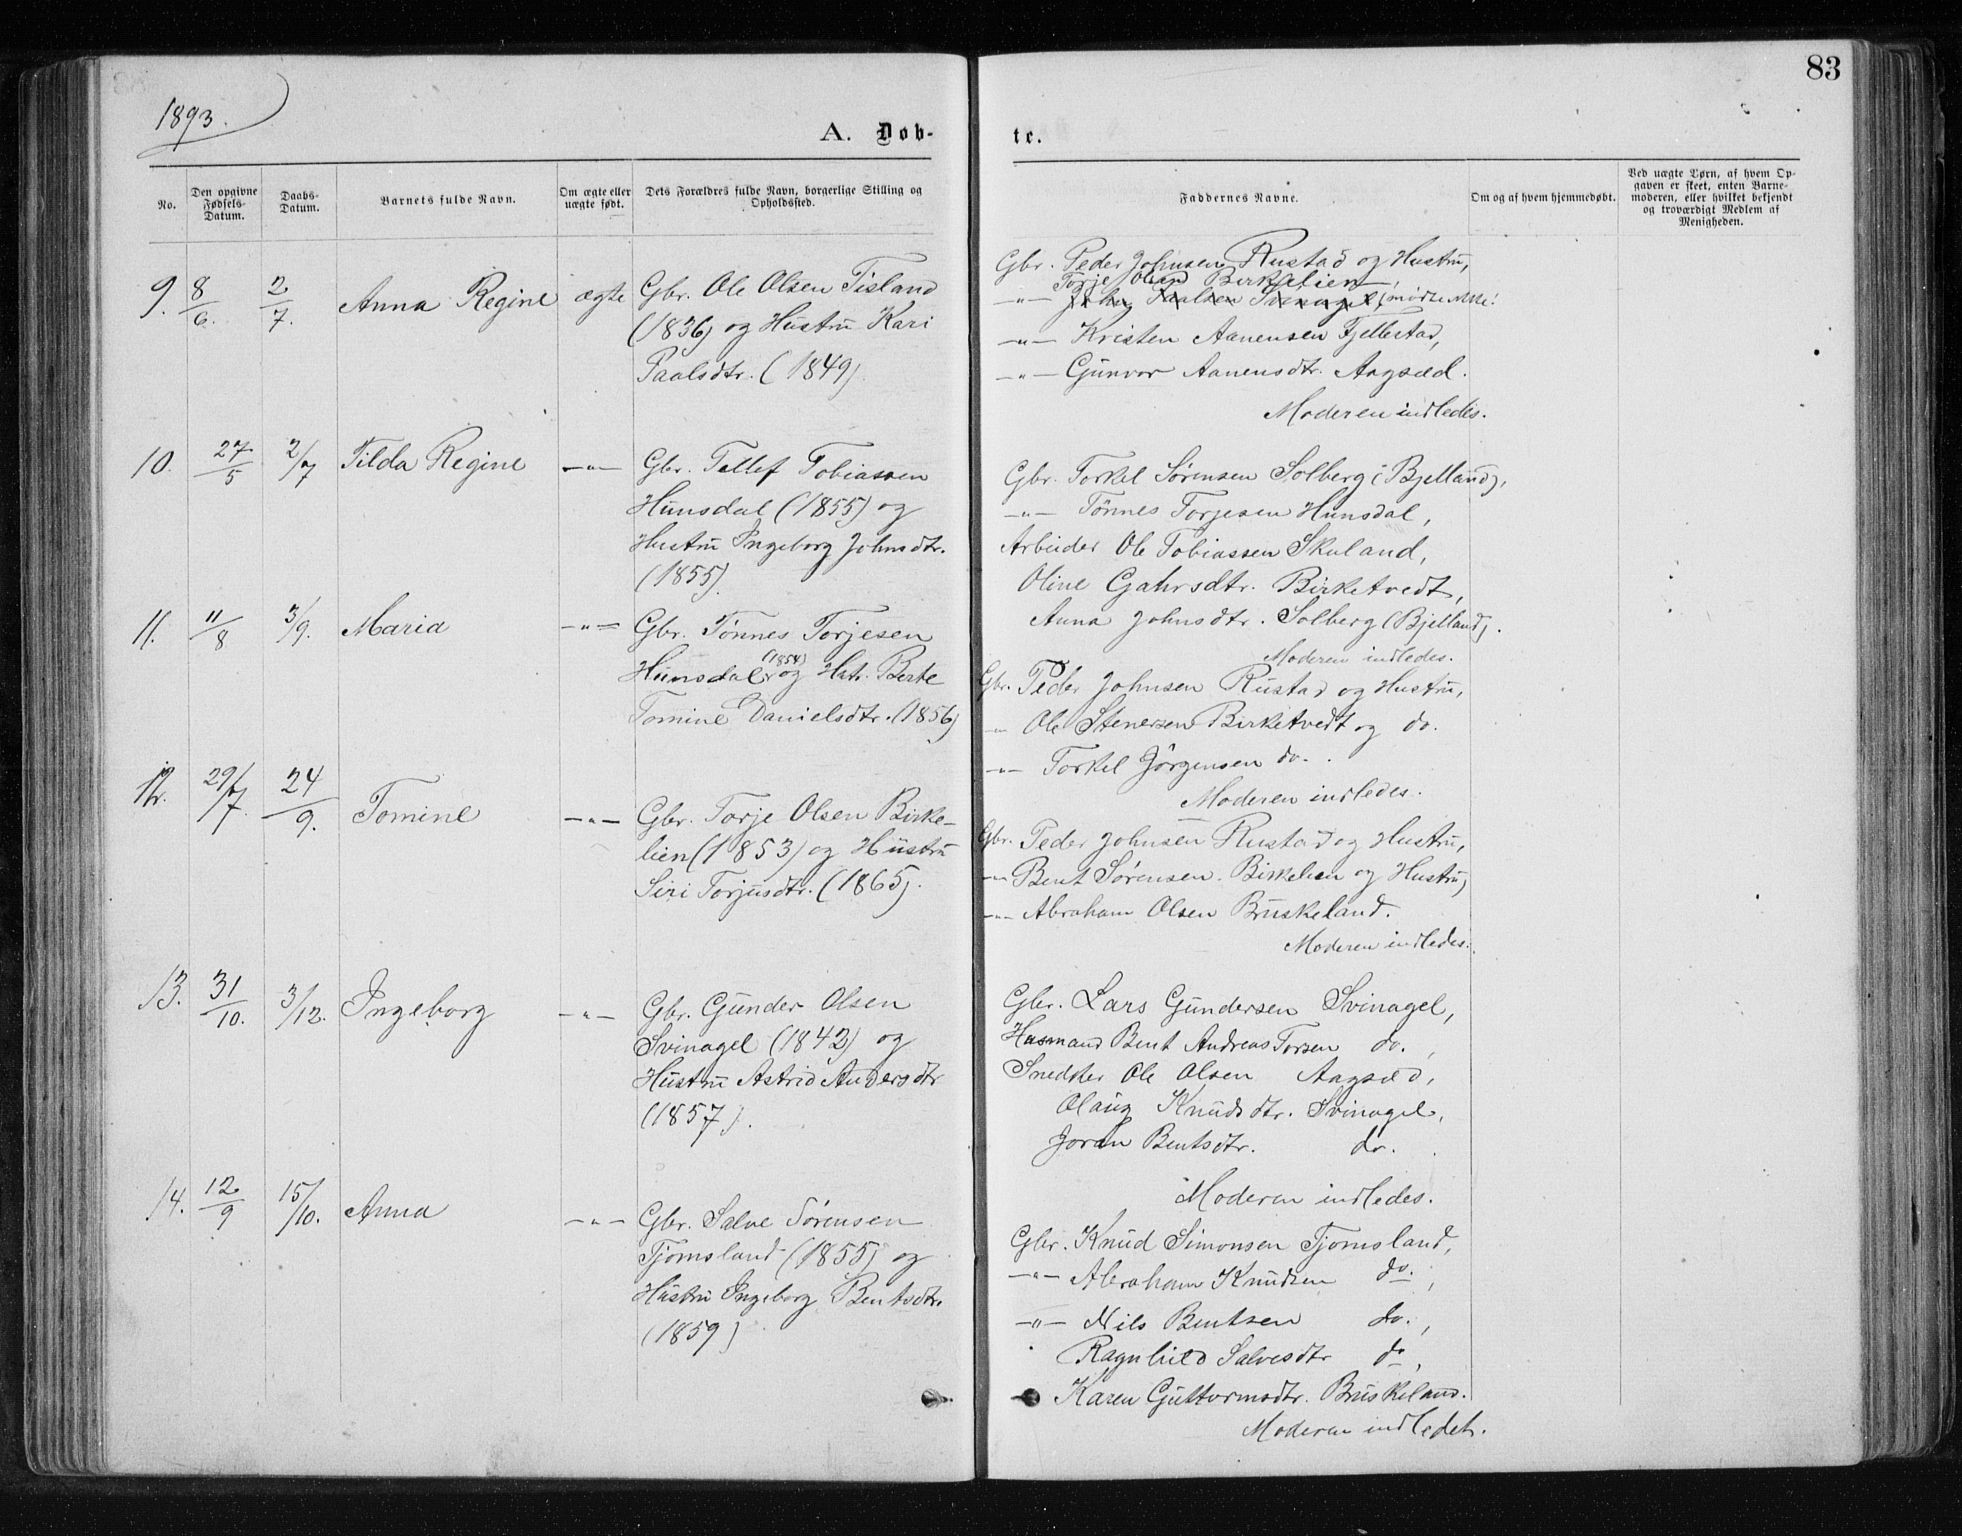 83
1893.
A. Døb-
te.
No.
Den opgivne Fødsels-Datum.
Daabs-Datum.
Barnets fulde Navn.
Om ægte eller uægte født.
Dets Forældres fulde Navn, borgerlige Stilling og Opholdssted.
Faddernes Navne.
Om og af hvem hjemmedøbt.
Ved uægte Børn, af hvem Opgaven er skeet, enten Barnemoderen, eller hvilket bekjendt og troværdigt Medlem af Menigheden.
9. 8/6. 2/7. Anna Regine ægte Gbr. Ole Olsen Tisland
(1836) og Hustru Kari
Paalsdtr. (1849).
Gbr. Peder Johnsen Rustad og Hustru,
Torje Olsen Birkelien,
-"- John Paalsen Svinagel (mødte ikke!
-"- Kristen Aanensen Fjellestad,
-"- Gunvor Aanensdtr. Aagsæd.
Moderen indledes.
10. 27/5 2/7 Tilda Regine -"- Gbr. Tellef Tobiassen
Hunsdal (1855) og
Hustru Ingeborg Johnsdtr.
(1855).
Gbr. Torkel Sørensen Solberg i Bjelland),
-"- Tönnes Torjesen Hunsdal,
Arbeider Ole Tobiassen Skuland,
Oline Gahrsdtr. Birketvedt,
Anna Johnsdtr. Solberg (Bjelland).
Moderen indledes.
11. 11/8 3/9. Maria -"- Gbr. Tönnes Torjesen
Hunsdal (1854) og Hstr. Berte
Tomine Danielsdtr. (1856)
Gbr. Peder Johnsen Rustad og Hustru,
-"- Ole Stenersen Birketvedt og do.
-"- Torkel Jörgensen do.
Moderen indledes.
12. 29/7. 24/9. Tomine -"- Gbr. Torje Olsen Birke-
lien (1853) og Hustru
Siri Torjusdtr. (1865).
Gbr. Peder Johnsen Rustad og Hustru,
-"- Bent Sørensen Birkelien og Hustru,
-"- Abraham Olsen Bruskeland.
Moderen indledes.
13. 31/10. 3/12. Ingeborg -"- Gbr. Gunder Olsen
Svinagel (1842) og
Hustru Astrid Andersdtr
(1857).
Gbr. Lars Gundersen Svinagel,
Husmand Bent Andreas Torsen do.,
Snedker Ole Olsen Aagsæd,
Olaug Knudsdtr. Svinagel,
Joran Bentsdtr. do.
Moderen indledes.
14. 12/9 15/10. Anna -"- Gbr. Salve Sörensen
Tjomsland (1855) og
Hustru Ingeborg Bentsdtr.
(1859)
Gbr. Knud Simonsen Tjomsland,
-"- Abraham Knudsen do.,
-"- Nils Bentsen do.,
Ragnhild Salvesdtr do,
Karen Guttormsdtr. Bruskeland.
Moderen indledet.